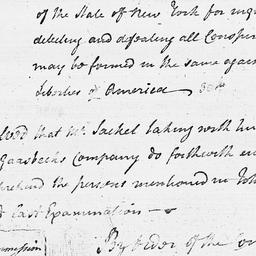 of the State of New York for inqu
detecting and defeating all Conspir
may be formed in the same again
Liberties of America
lved that Mr. Sackel taking with hi
Gaasbecks Company do forthwith en
prehend the persons mentioned in Joh
t East Examination
By order of the Com
mmission